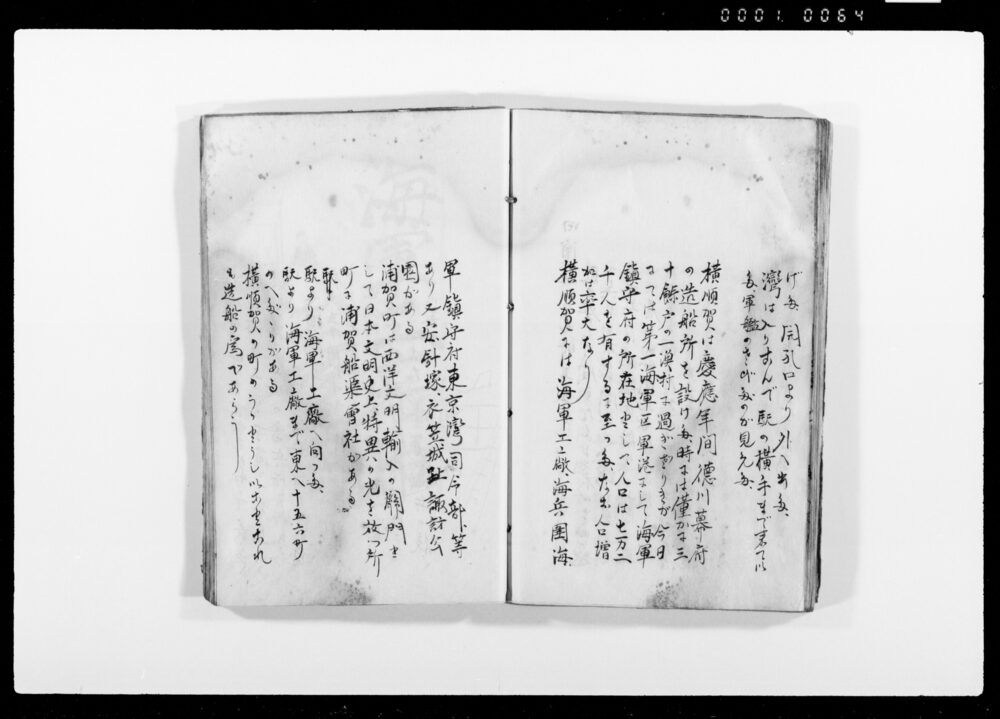 0001 0064
げた、同孔口より外へ出た、
灣は入りすんで駅の横手まで来て以
た、軍艦のさびたのが見えた、
横順賀は慶應年間徳川幕府
の造船所を設けた時には僅かに三
十餘戸の一漁村に過ぎざりきが今日
にては第一海軍区軍港にして海軍
鎮守府の所在地として人口は七万二
千人を有するに至つた、なお人口増
加は卒大なり
横順賀には海軍工廠、海兵團海
軍鎮守府東京灣司令部等
あり又安針塚、衣笠城趾諏訪公
園がある
浦賀町は西洋文明輸入の關門と
して日本文明史上特異の光を放つ所
町に浦賀船渠會社がある
駅より海軍工廠へ向つた、
駅より海軍工廠まで東へ十五六町
のへだゝりがある
横順賀の町の
も造船の為であらう